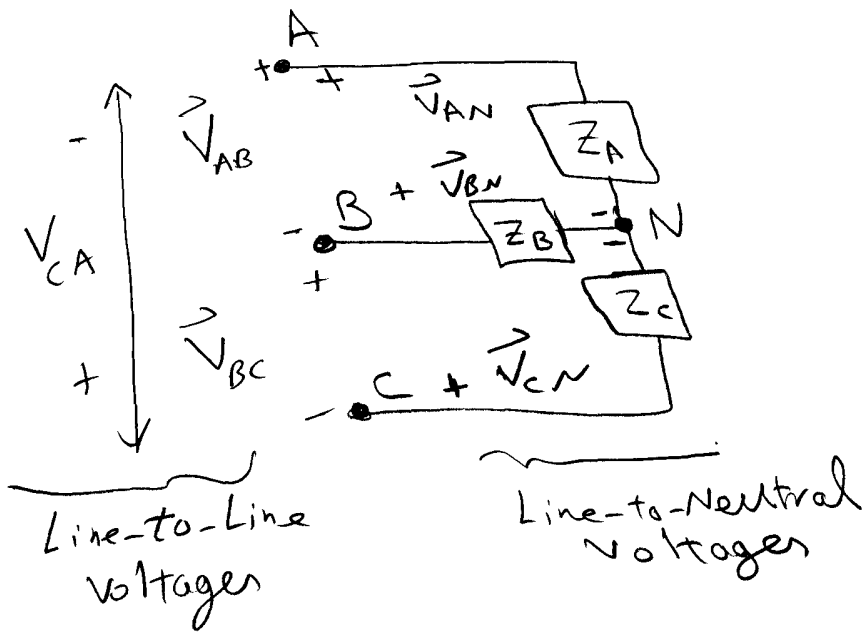 A
+ +
V⃗AN
ZA
-
V⃗AB
VCA
B + V⃗BN
- ZB - N
+ -
ZC
V⃗BC
+
C + V⃗CN
-
Line-to-Line
Voltages
Line-to-Neutral
Voltages